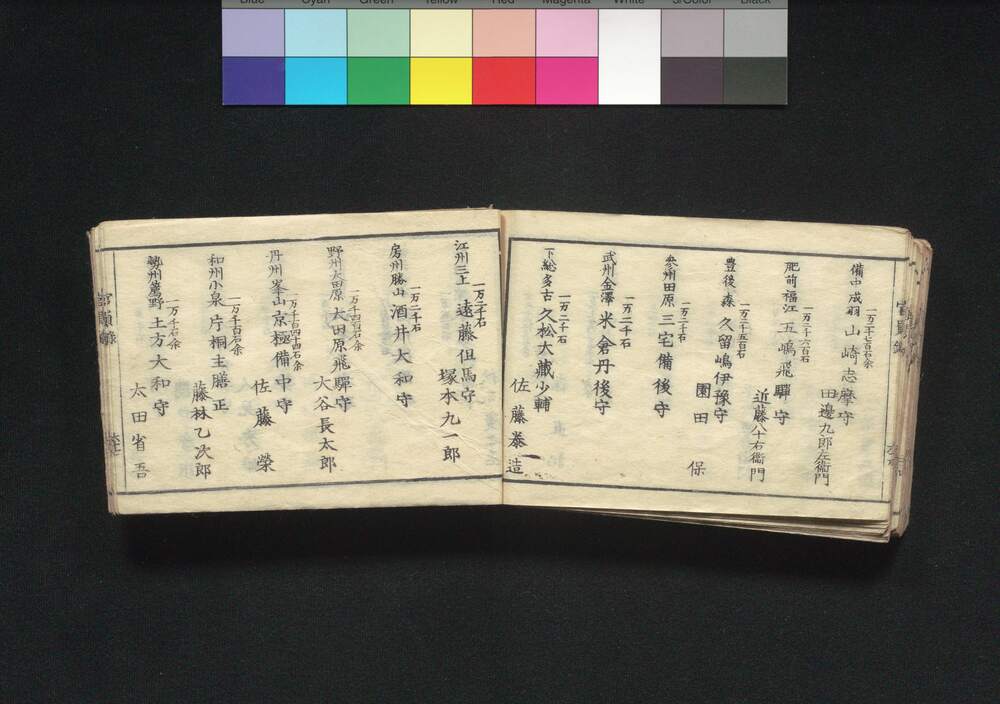 Blue Cyan Green Yellow Red Magenta White 3/Color Black
備中成羽 一万二千七百石余 山崎志摩守
田邊九郎左衞門
肥前福江 一万二千六百石 五嶋飛驒守
近藤八十右衞門
豊後森 一万二千五百石 久留嶋伊豫守
園田保
参州田原 一万二千石 三宅備後守
武州金澤 一万二千石 米倉丹後守
下総多古 一万二千石 久松大藏少輔
佐藤泰造
江州三上 一万二千石 遠藤但馬守
塚本九一郎
房州勝山 一万二千石 酒井大和守
野州大田原 一万千四百石余 大田原飛驒守
大谷長太郎
丹州峯山 一万千百四十四石余 京極備中守
佐藤榮
和州小泉 一万千百石余 片桐主膳正
藤林乙次郎
勢州薦野 一万千石余 土方大和守
太田省吾